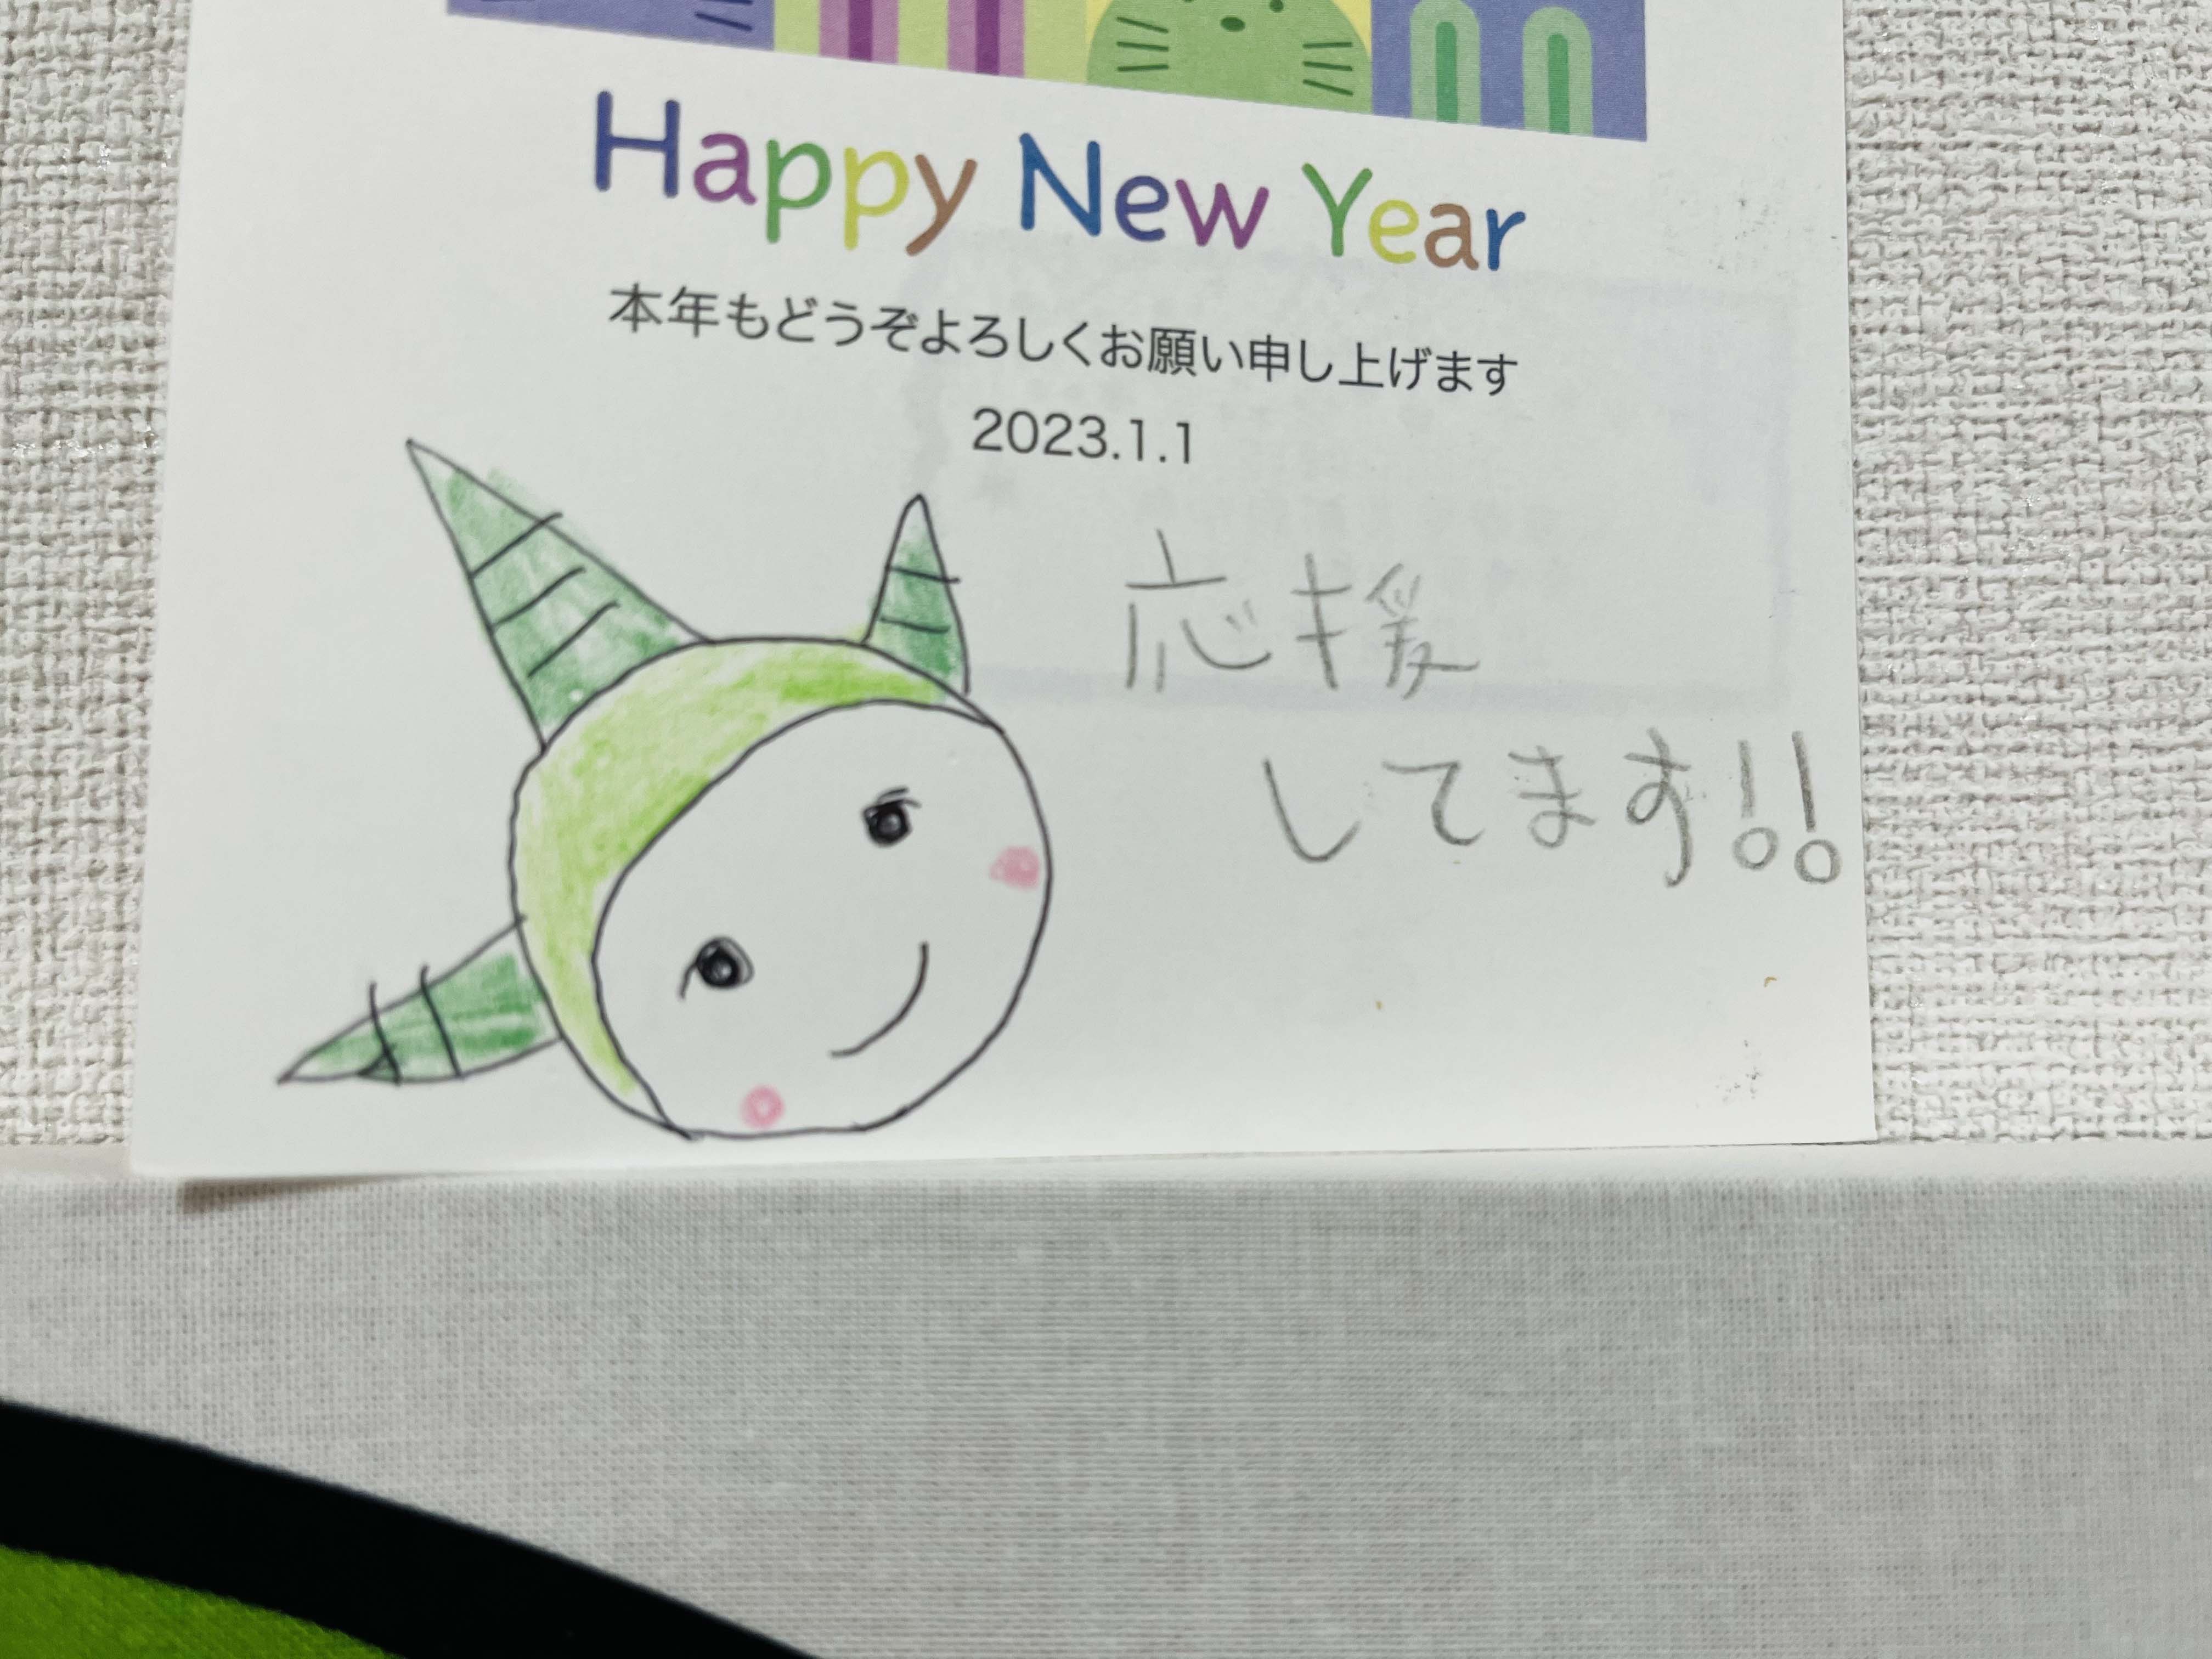 Happy New Year
本年もどうぞよろしくお願い申し上げます
2023.1.1
応援
してます!!